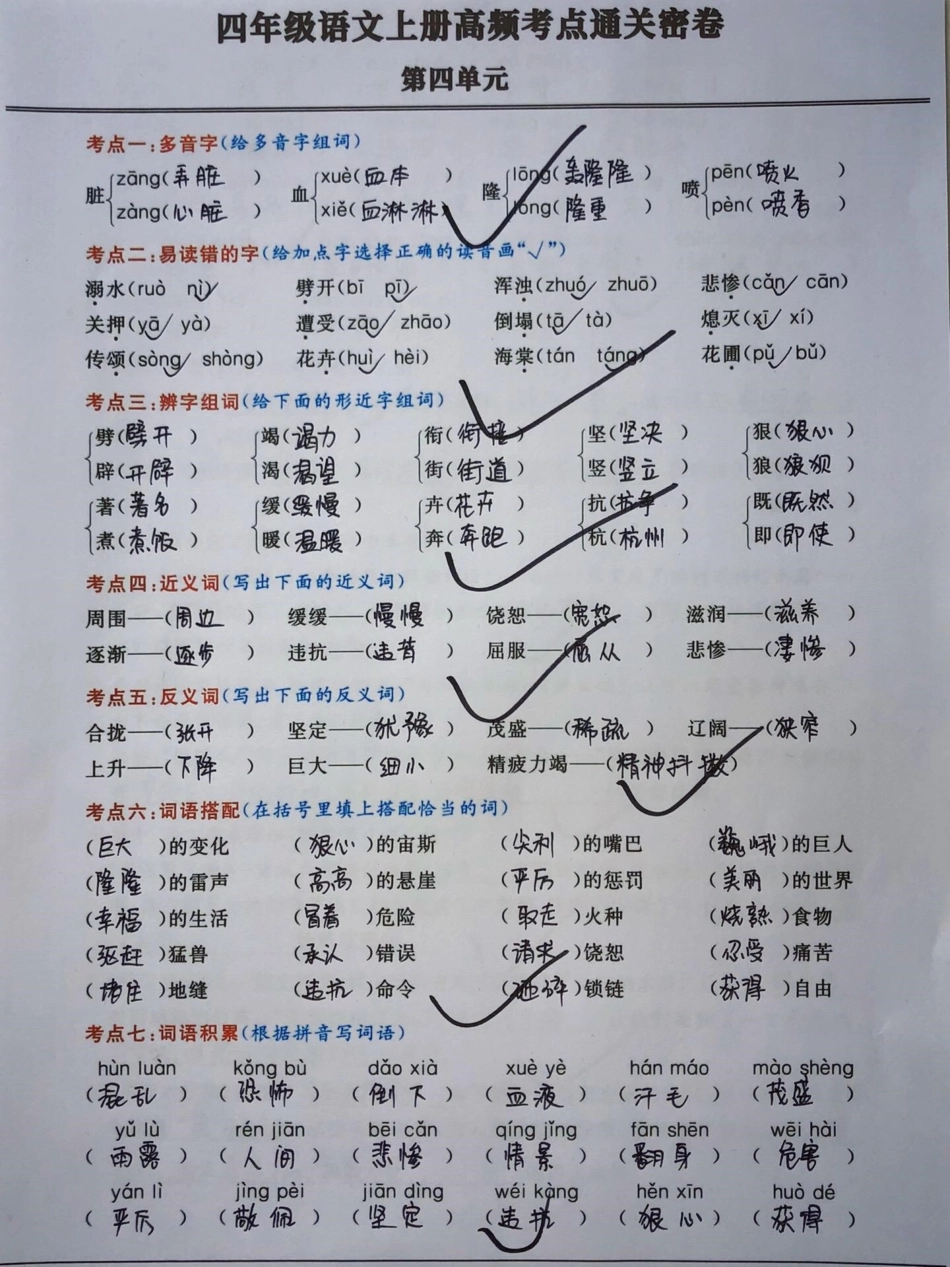 四年级语文上册高频考点通关密卷
第四单元
考点一:多音字(给多音字组词)
脏 zāng(弄脏) 血 xuè(血本) 隆 lōng(轰隆隆) 喷 pēn(喷火)
zàng(心脏) xiě(血淋淋) lóng(隆重) pèn(喷香)
考点二:易读错的字(给加点字选择正确的读音画“√”)
溺水(ruò nì√) 劈开(bī pī√) 浑浊(zhuó√ zhuō) 悲惨(cǎn√ cān)
关押(yā√ yà) 遭受(zāo√ zhāo) 倒塌(tā√ tà) 熄灭(xī√ xí)
传颂(sòng√ shòng) 花卉(huì√ hèi) 海棠(tán táng√) 花圃(pǔ√ bǔ)
考点三:辨字组词(给下面的形近字组词)
劈(劈开) 竭(竭力) 衔(衔接) 坚(坚决) 狠(狠心)
辟(开辟) 渴(渴望) 街(街道) 竖(竖立) 狼(狼狈)
著(著名) 缓(缓慢) 卉(花卉) 抗(抗争) 既(既然)
煮(煮饭) 暖(温暖) 奔(奔跑) 杭(杭州) 即(即使)
考点四:近义词(写出下面的近义词)
周围——(周边) 缓缓——(慢慢) 饶恕——(宽恕) 滋润——(滋养)
逐渐——(逐步) 违抗——(违背) 屈服——(屈从) 悲惨——(凄惨)
考点五:反义词(写出下面的反义词)
合拢——(张开) 坚定——(犹豫) 茂盛——(稀疏) 辽阔——(狭窄)
上升——(下降) 巨大——(细小) 精疲力竭——(精神抖擞)
考点六:词语搭配(在括号里填上搭配恰当的词)
(巨大)的变化 (狠心)的宙斯 (尖利)的嘴巴 (巍峨)的巨人
(隆隆)的雷声 (高高)的悬崖 (严厉)的惩罚 (美丽)的世界
(幸福)的生活 (冒着)危险 (取走)火种 (烧熟)食物
(驱赶)猛兽 (承认)错误 (请求)饶恕 (忍受)痛苦
(堵住)地缝 (违抗)命令 (砸碎)锁链 (获得)自由
考点七:词语积累(根据拼音写词语)
hùn luàn kǒng bù dǎo xià xuè yè hán máo mào shèng
(混乱) (恐怖) (倒下) (血液) (汗毛) (茂盛)
yǔ lù rén jiān bēi cǎn qíng jǐng fān shēn wēi hài
(雨露) (人间) (悲惨) (情景) (翻身) (危害)
yán lì jìng pèi jiān dìng wéi kàng hěn xīn huò dé
(严厉) (敬佩) (坚定) (违抗) (狠心) (获得)